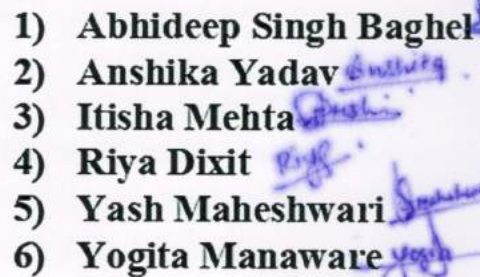 1) Abhideep Singh Baghel
2) Anshika Yadav Anshika
3) Itisha Mehta
4) Riya Dixit Riya
5) Yash Maheshwari
6) Yogita Manaware Yogita